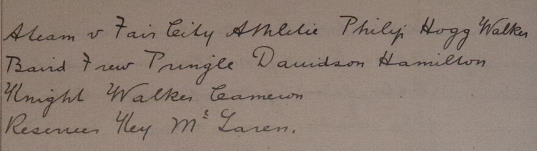 A team v Fair City Athletic Philip Hogg Walker
Baird Frew Pringle Davidson Hamilton
Knight Walker Cameron
Reserves Key Mc Laren.